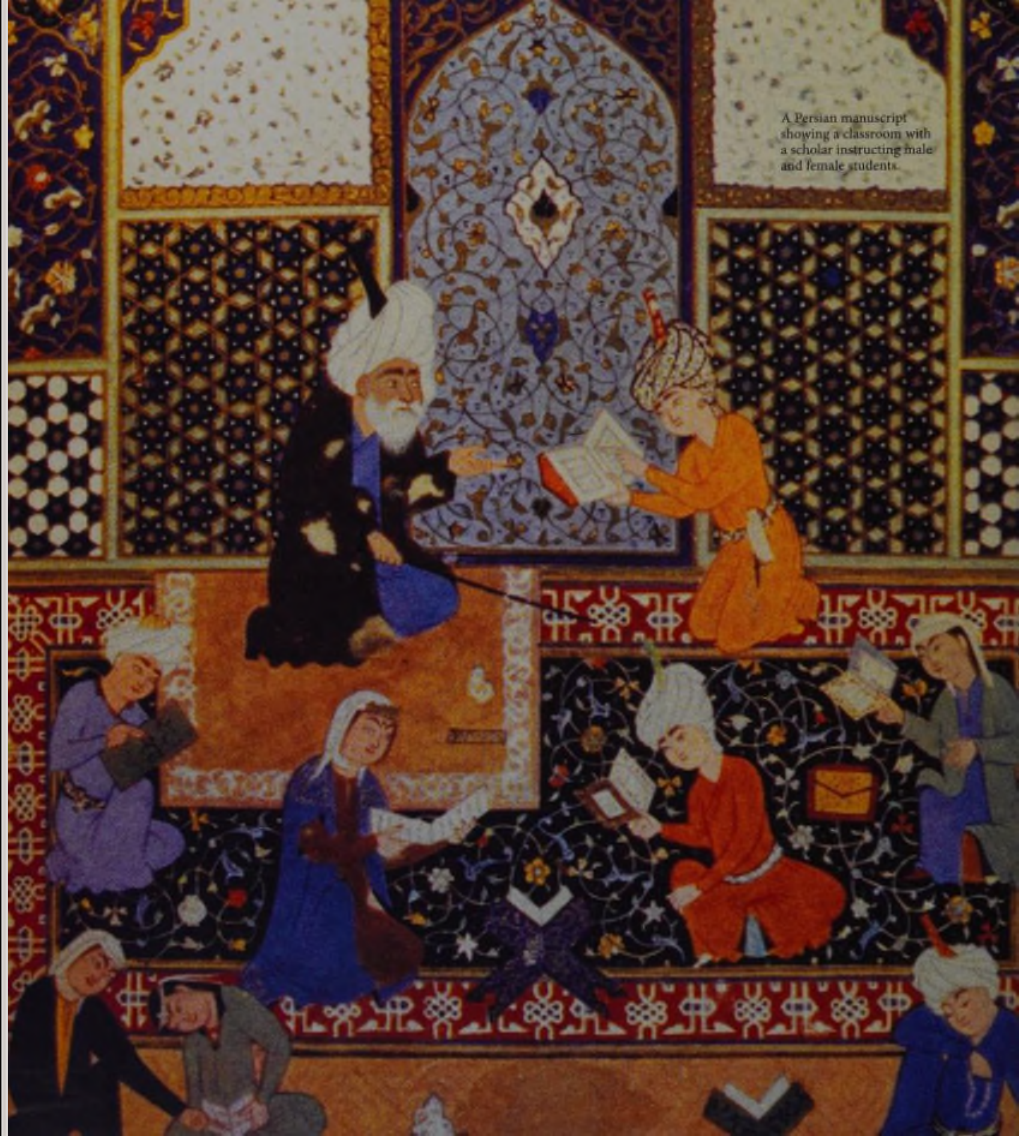 A Persian manuscript
showing a classroom with
a scholar instructing male
and female students.